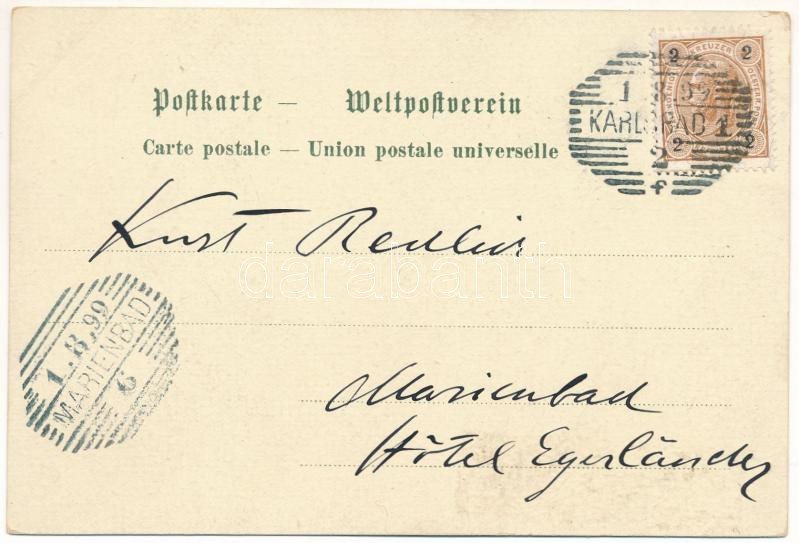 Postkarte — Weltpostverein
Carte postale — Union postale universelle
2 KREUZER 2
2 2
1 8 99
KARLSBAD 1
2
f
Kurt
darabanth
1.8.99
MARIENBAD
6
Marienbad
Hôtel Egerländer